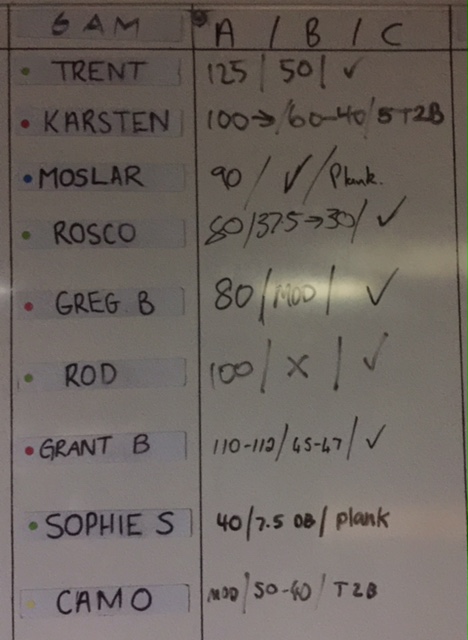 6 AM A / B / C
TRENT 125 / 50 / ✓
KARSTEN 100→ / 60-40 / 5 T2B
MOSLAR 90 / ✓ / Plank.
ROSCO 80 / 37.5→30 / ✓
GREG B 80 / MOD / ✓
ROD 100 / X / ✓
GRANT B 110-112 / 45-47 / ✓
SOPHIE S 40 / 7.5 DB / Plank
CAMO MOD / 50-40 / T2B